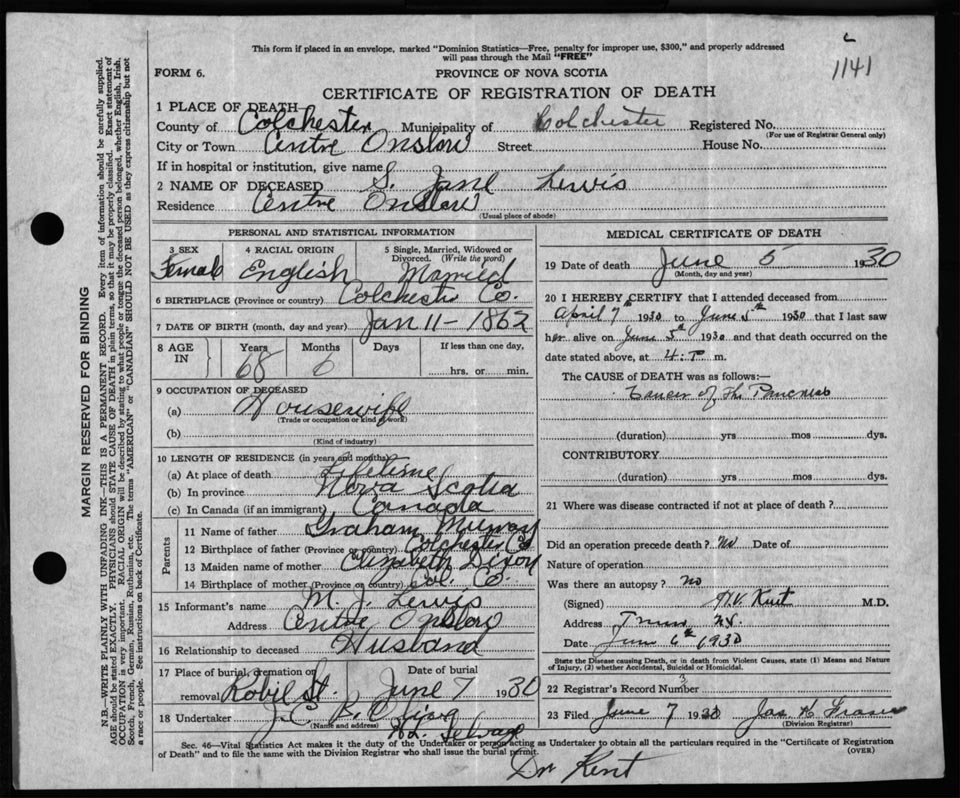 This form if placed in an envelope, marked "Dominion Statistics—Free, penalty for improper use, $300," and properly addressed
will pass through the Mail "FREE"
1141
FORM 6.
PROVINCE OF NOVA SCOTIA
CERTIFICATE OF REGISTRATION OF DEATH
1 PLACE OF DEATH
County of Colchester Municipality of Colchester Registered No.
(For use of Registrar General only)
City or Town Centre Onslow Street House No.
If in hospital or institution, give name
2 NAME OF DECEASED S. Jane Lewis
Residence Centre Onslow
(Usual place of abode)
PERSONAL AND STATISTICAL INFORMATION
3 SEX 4 RACIAL ORIGIN 5 Single, Married, Widowed or
Divorced. (Write the word)
Female English Married
6 BIRTHPLACE (Province or country) Colchester Co.
7 DATE OF BIRTH (month, day and year) Jan 11 - 1862
8 AGE IN Years Months Days If less than one day,
68 6 hrs. or min.
9 OCCUPATION OF DECEASED
(a) Housewife
(Trade or occupation or kind of work)
(b)
(Kind of industry)
10 LENGTH OF RESIDENCE (in years and months)
(a) At place of death Lifetime
(b) In province Nova Scotia
(c) In Canada (if an immigrant) Canada
Parents
11 Name of father Graham Murray
12 Birthplace of father (Province or country) Colchester Co
13 Maiden name of mother Elizabeth Dixon
14 Birthplace of mother (Province or country) Col. Co.
15 Informant's name M. J. Lewis
Address Centre Onslow
16 Relationship to deceased Husband
17 Place of burial, cremation or Date of burial
removal Robie St. June 7 1930
18 Undertaker J. C. B.
(Name and address)
MEDICAL CERTIFICATE OF DEATH
19 Date of death June 5 1930
(Month, day and year)
20 I HEREBY CERTIFY that I attended deceased from
April 7th 1930 to June 5th 1930 that I last saw
her alive on June 5th 1930 and that death occurred on the
date stated above, at 4: m.
The CAUSE of DEATH was as follows:—
Cancer of the Pancreas
(duration) yrs mos dys.
CONTRIBUTORY
(duration) yrs mos dys.
21 Where was disease contracted if not at place of death?
Did an operation precede death? No Date of
Nature of operation
Was there an autopsy? no
(Signed) H.V. Kent M.D.
Address Truro N.S.
Date June 6th 1930
State the Disease causing Death, or in death from Violent Causes, state (1) Means and Nature
of Injury, (2) whether Accidental, Suicidal or Homicidal.
22 Registrar's Record Number 3
23 Filed June 7 1930 Jas H Fraser
(Division Registrar)
Sec. 46—Vital Statistics Act makes it the duty of the Undertaker or person acting as Undertaker to obtain all the particulars required in the "Certificate of Registration
of Death" and to file the same with the Division Registrar who shall issue the burial permit. (OVER)
Dr Kent
MARGIN RESERVED FOR BINDING
N.B.—WRITE PLAINLY WITH UNFADING INK—THIS IS A PERMANENT RECORD. Every item of information should be carefully supplied.
AGE should be stated EXACTLY. PHYSICIANS should STATE CAUSE OF DEATH in plain terms, so that it may be properly classified. Exact statement of
OCCUPATION is very important. RACIAL ORIGIN will be described by stating to what people or tongue the deceased person belonged, whether English, Irish,
Scotch, French, German, Russian, Ruthenian, etc. The terms "AMERICAN" or "CANADIAN" SHOULD NOT BE USED as they express citizenship but not
a race or people. See instructions on back of Certificate.